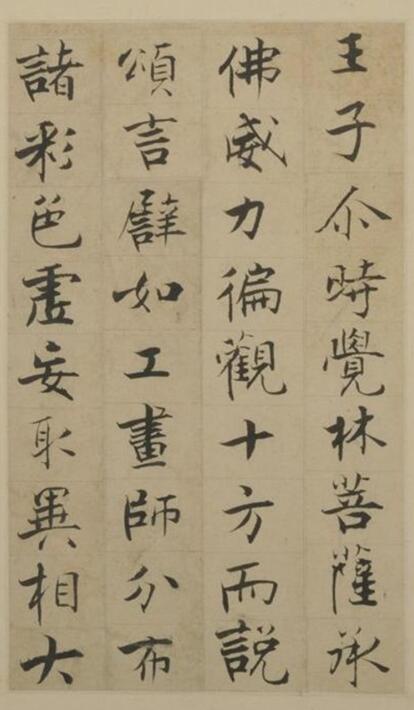 王子尒時覺林菩薩承
佛威力徧觀十方而説
頌言譬如工畫師分布
諸彩色虚妄取異相大